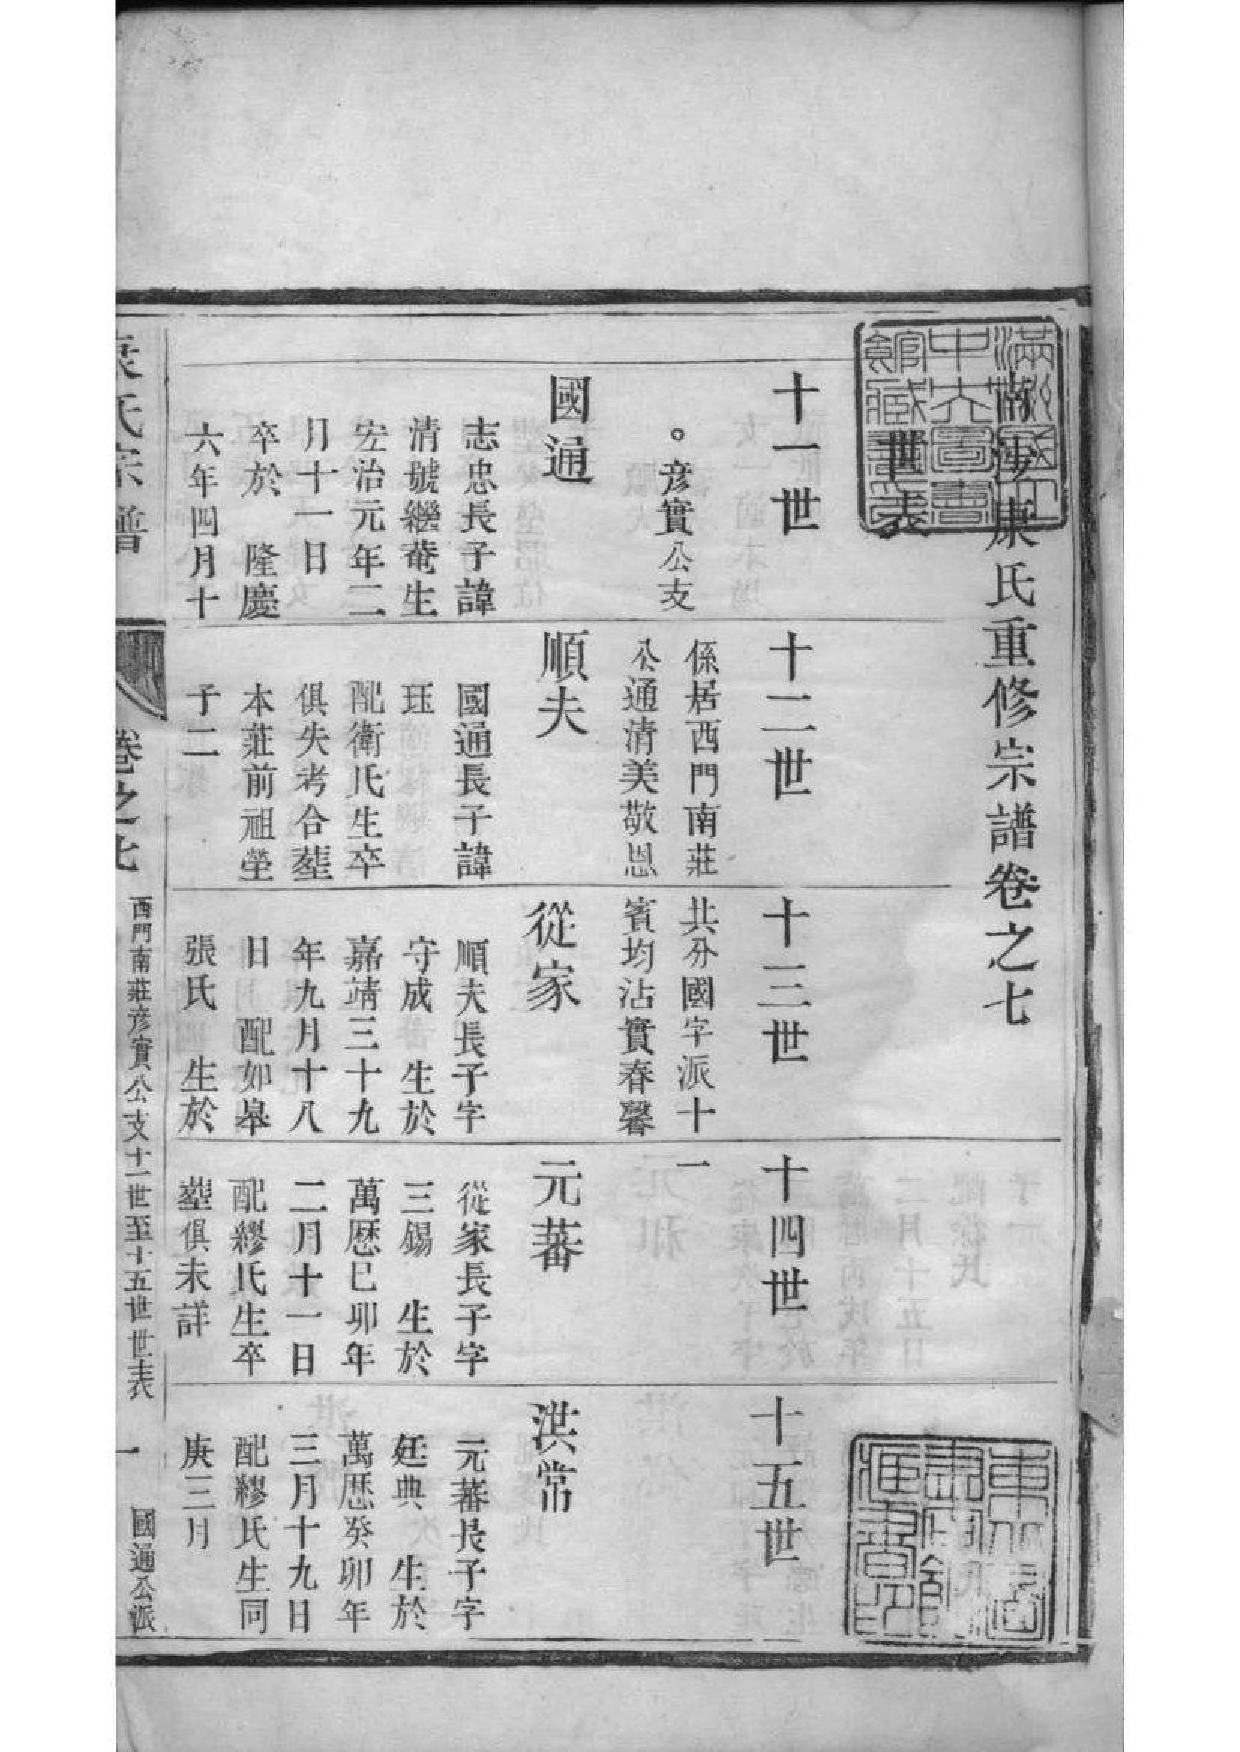 南沙康氏重修宗譜卷之七
世表
十一世
十二世
十三世
十四世
十五世
。彥實公支
係居西門南莊
共分國字派十
一
公通清美敬恩
賓均沾實春馨
國通
志忠長子諱
清號繼菴生
宏治元年二
月十一日
卒於 隆慶
六年四月十
順夫
國通長子諱
珏
配衛氏生卒
俱失考合塟
本莊前祖塋
子二
從家
順夫長子字
守成 生於
嘉靖三十九
年九月十八
日 配如皋
張氏 生於
元蕃
從家長子字
三錫 生於
萬歷已卯年
二月十一日
配繆氏生卒
塟俱未詳
洪常
元蕃長子字
廷典 生於
萬歷癸卯年
三月十九日
配繆氏生同
庚三月
氏宗譜
卷之七
西門南莊彥實公支十一世至十五世世表
一
國通公派